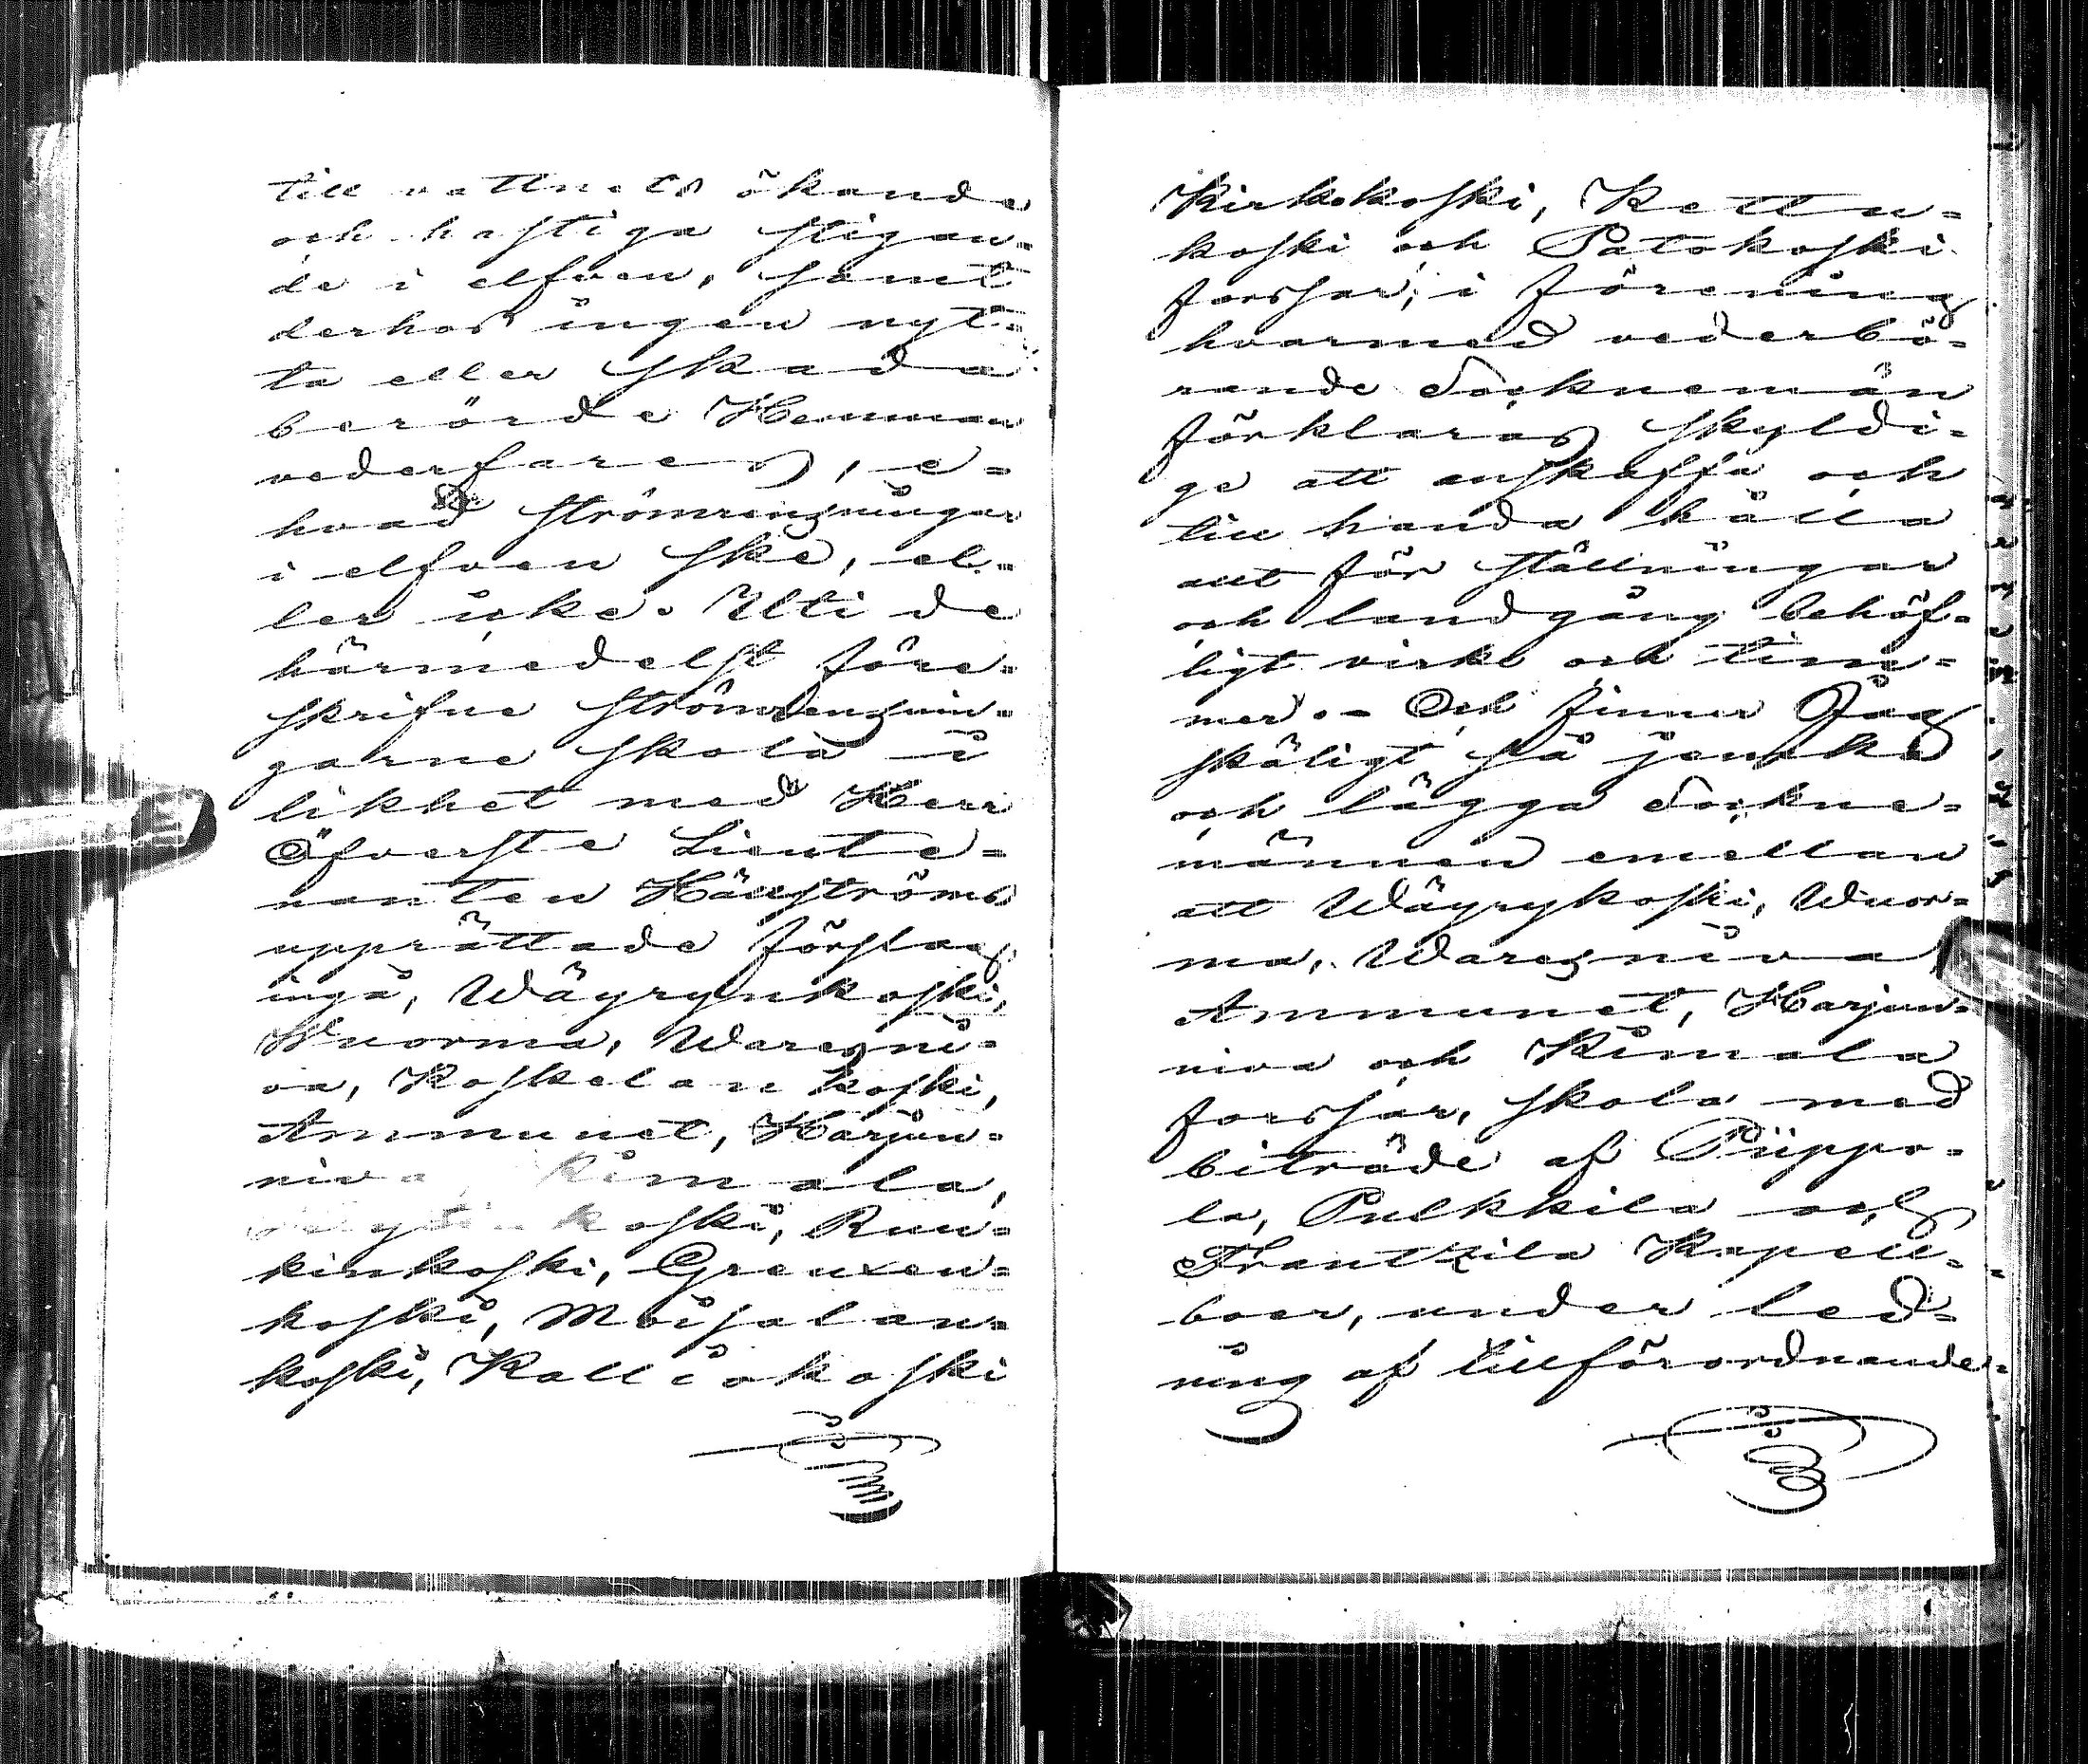 till vattnets ökande
och haftiga stigan=
de i elfven, samt
derhos ingen nyt=
ta eller skada
berörde Hemman
vederfares, e=
hvad strömrensningar
i elfven ske, el=
ler icke. Uti de
härmedelst före=
skrifne strömrensnin=
garne skola i
likhet med Herr
Öfverste Lieute=
nanten Hällströms
upprättade förslag
ingå, Wäyrynkoski,
Wuorma, Waresni=
va, Koskelankoski,
Ammunet, Harjun=
niva, Rimala,
koski, Ruu=
kinkoski, Grenxen=
koski, Moisalan=
koski, Kalliokoski
Kirkkokoski, Kettu=
koski och Patokoski
forssar; i förening
hvarmed vederbö=
rande Socknemän
förklaras skyldi=
ge att anskaffa och
till handa hålla
allt för ställningar
och landgång behöf=
ligt virke och tim=
mer. – Och finner Jag
skäligt så jemka
och lägga Sockne=
männen emellan
att Wäyrykoski, Wuor=
ma, Waresniva
Ammunet, Harjun=
niva och Rimala
forssar, skola med
biträde af Piippo=
la, Pulkkila och
Frantzila Kapell=
boer, under led=
ning af tillförordnande=